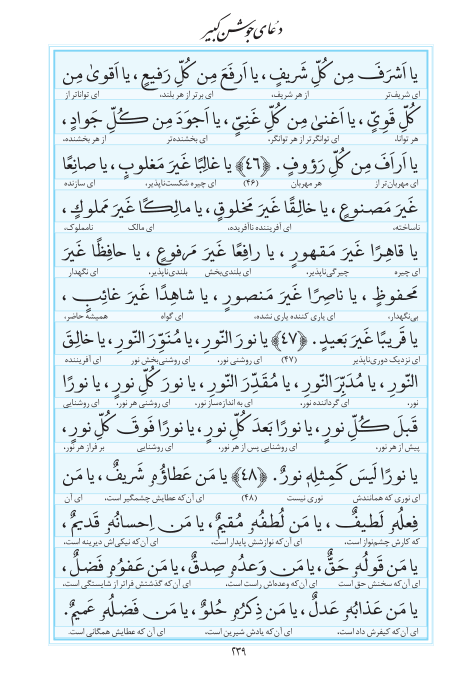 دعای جوشن کبیر
یا اَشرَفَ مِن کُلِّ شَریفٍ، یا اَرفَعَ مِن کُلِّ رَفیعٍ، یا اَقویٰ مِن
ای شریف‌تر از هر شریف، ای برتر از هر بلند، ای تواناتر از
کُلِّ قَوِیٍّ، یا اَغنیٰ مِن کُلِّ غَنِیٍّ، یا اَجوَدَ مِن کُلِّ جَوادٍ،
هر توانا، ای توانگرتر از هر توانگر، ای بخشنده‌تر از هر بخشنده،
یا اَراَفَ مِن کُلِّ رَؤوفٍ. ﴿٤٦﴾ یا غالِبًا غَیرَ مَغلوبٍ، یا صانِعًا
ای مهربان‌تر از هر مهربان (۴۶) ای چیره شکست‌ناپذیر، ای سازنده
غَیرَ مَصنوعٍ، یا خالِقًا غَیرَ مَخلوقٍ، یا مالِکًا غَیرَ مَملوكٍ،
ناساخته، ای آفریننده ناآفریده، ای مالک نامملوک،
یا قاهِرًا غَیرَ مَقهورٍ، یا رافِعًا غَیرَ مَرفوعٍ، یا حافِظًا غَیرَ
ای چیره چیرگی‌ناپذیر، ای بلندی‌بخش بلندی‌ناپذیر، ای نگهدار
مَحفوظٍ، یا ناصِرًا غَیرَ مَنصورٍ، یا شاهِدًا غَیرَ غائِبٍ،
بی‌نگهدار، ای یاری کننده یاری نشده، ای گواه همیشه حاضر،
یا قَریبًا غَیرَ بَعیدٍ. ﴿٤٧﴾ یا نورَ النّورِ، یا مُنَوِّرَ النّورِ، یا خالِقَ
ای نزدیک دوری‌ناپذیر (۴۷) ای روشنی نور، ای روشنی‌بخش نور ای آفریننده
النّورِ، یا مُدَبِّرَ النّورِ، یا مُقَدِّرَ النّورِ، یا نورَ کُلِّ نورٍ، یا نورًا
نور، ای گرداننده نور، ای به اندازه‌ساز نور، ای روشنی هر نور، ای روشنایی
قَبلَ کُلِّ نورٍ، یا نورًا بَعدَ کُلِّ نورٍ، یا نورًا فَوقَ کُلِّ نورٍ،
پیش از هر نور، ای روشنایی پس از هر نور، ای روشنایی بر فراز هر نور،
یا نورًا لَیسَ کَمِثلِهِ نورٌ. ﴿٤٨﴾ یا مَن عَطاؤُهُ شَریفٌ، یا مَن
ای نوری که همانندش نوری نیست (۴۸) ای آن‌که عطایش چشمگیر است، ای آن
فِعلُهُ لَطیفٌ، یا مَن لُطفُهُ مُقیمٌ، یا مَن اِحسانُهُ قَدیمٌ،
که کارش چشم‌نواز است، ای آن‌که نوازشش پایدار است، ای آن‌که نیکی‌اش دیرینه است،
یا مَن قَولُهُ حَقٌّ، یا مَن وَعدُهُ صِدقٌ، یا مَن عَفوُهُ فَضلٌ،
ای آن‌که سخنش حق است ای آن‌که وعده‌اش راست است، ای آن‌که گذشتش فراتر از شایستگی است،
یا مَن عَذابُهُ عَدلٌ، یا مَن ذِکرُهُ حُلوٌ، یا مَن فَضلُهُ عَمیمٌ.
ای آن‌که کیفرش داد است، ای آن‌که یادش شیرین است، ای آن‌که عطایش همگانی است.
۲۳۹